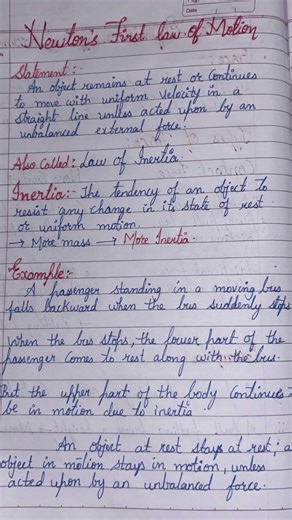 Date
Newton's First law of Motion
Statement:-
An object remains at rest or continues
to move with uniform velocity in a
straight line unless acted upon by an
unbalanced external force.
Also Called: Law of Inertia.
Inertia:- The tendency of an object to
resist any change in its state of rest
or uniform motion.
→ More mass → More Inertia.
Example:-
A passenger standing in a moving bus
falls backward when the bus suddenly stops
When the bus stops, the lower part of the
passenger comes to rest along with the bus.
But the upper part of the body continues
be in motion due to inertia
An object at rest stays at rest; a
object in motion stays in motion, unless
acted upon by an unbalanced force.